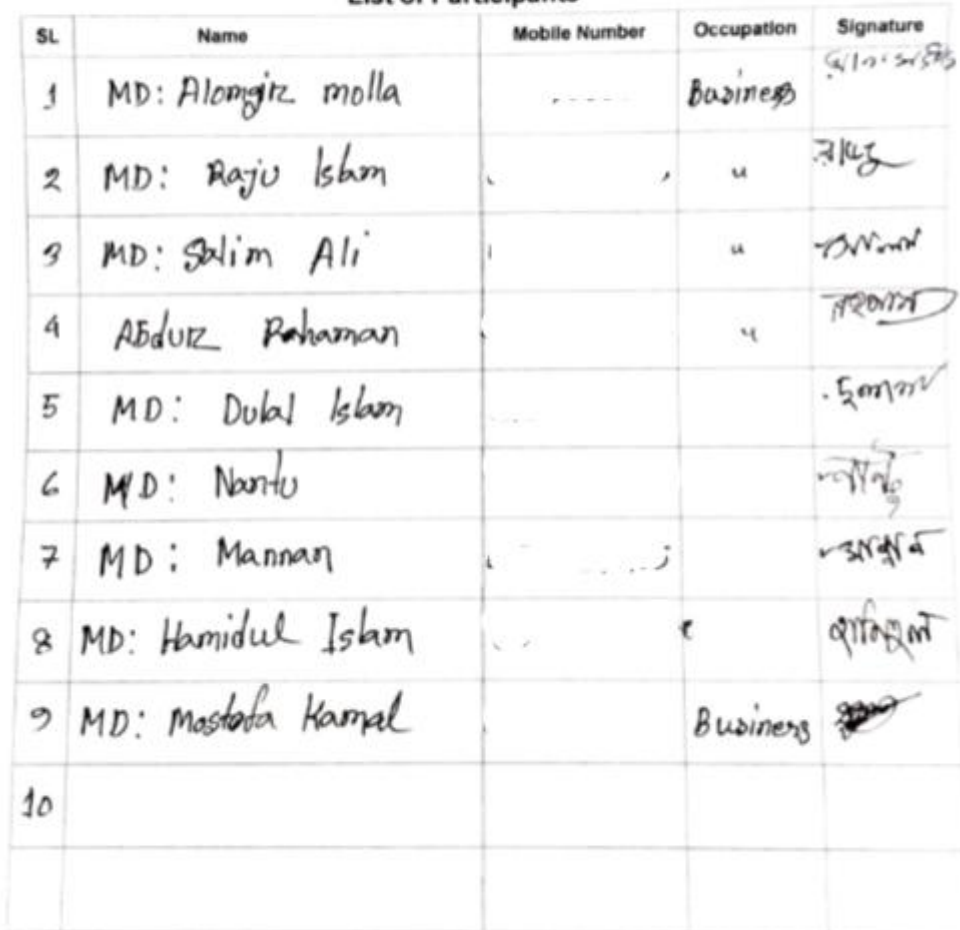 List of Participants
SL Name Mobile Number Occupation Signature
1 MD: Alomgir molla Business
2 MD: Raju Islam " রাজু
3 MD: Salim Ali "
4 Abdur Rahaman " রহমান
5 MD: Dulal Islam দুলাল
6 MD: Nantu নান্টু
7 MD: Mannan মান্নান
8 MD: Hamidul Islam হামিদুল
9 MD: Mostofa Kamal Business
10